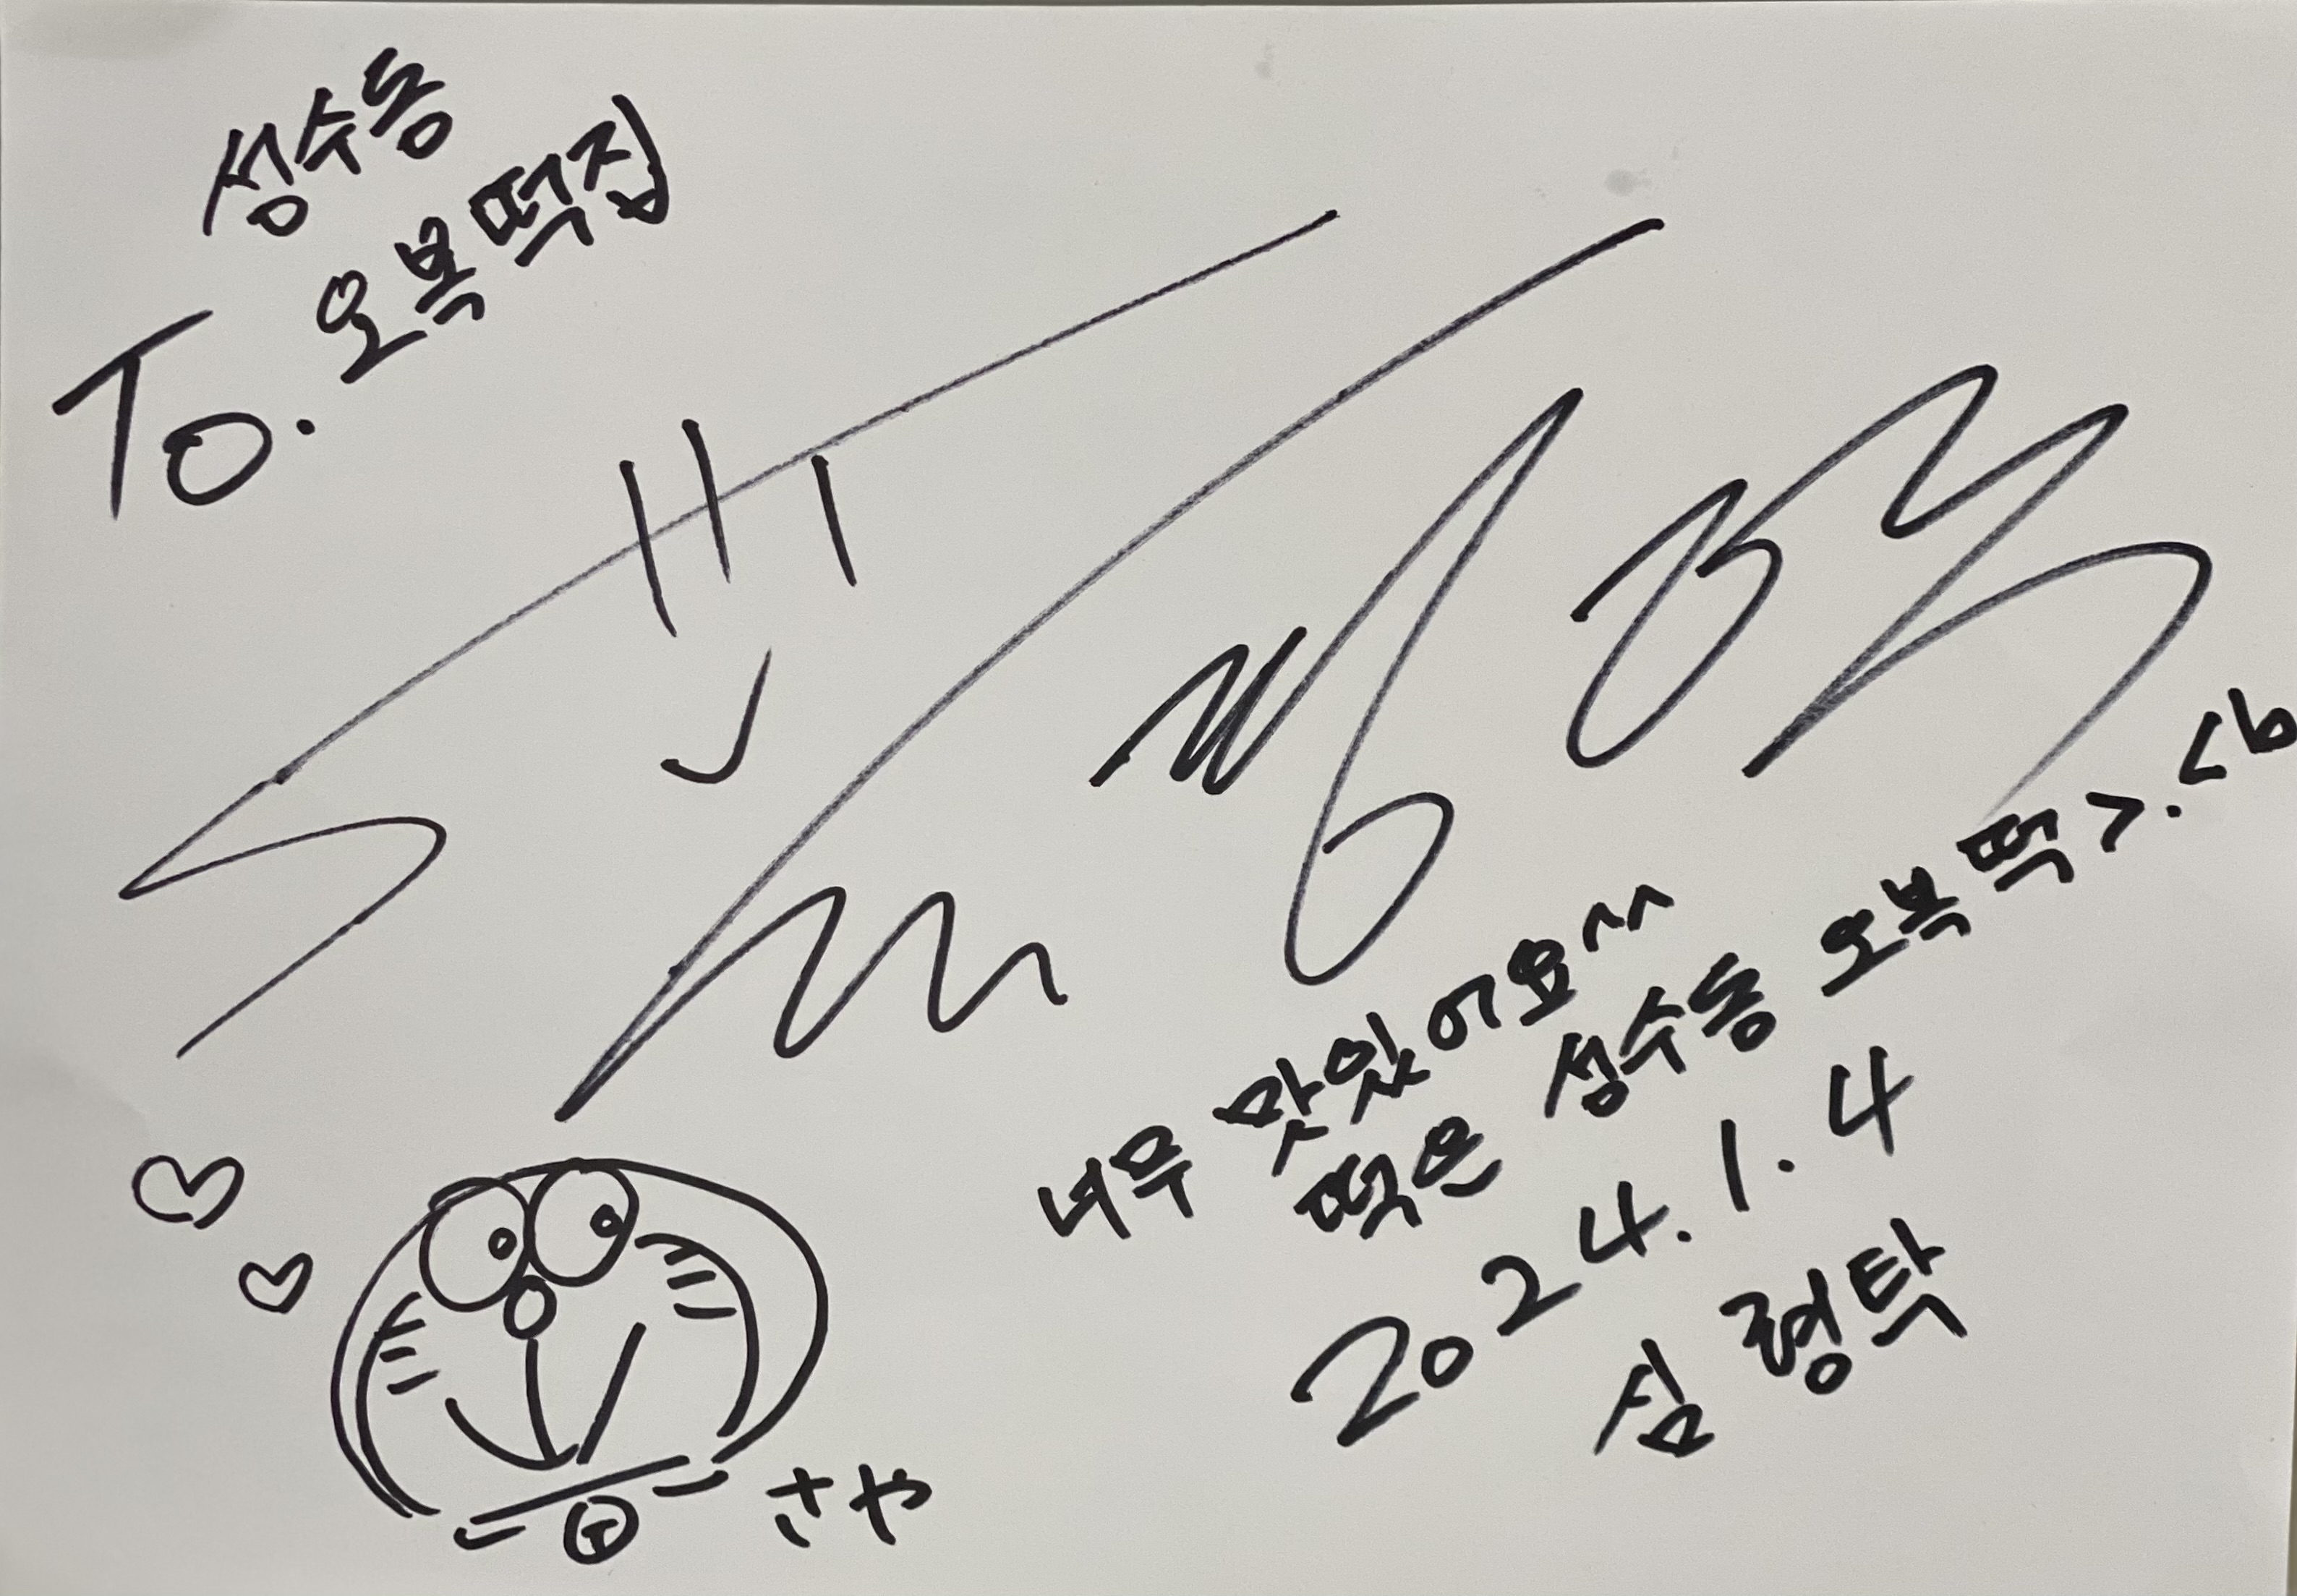 성수동
To. 오복떡집
너무 맛있어요^^
떡은 성수동 오복떡 >.<b
2024.1.4
심형탁
さや